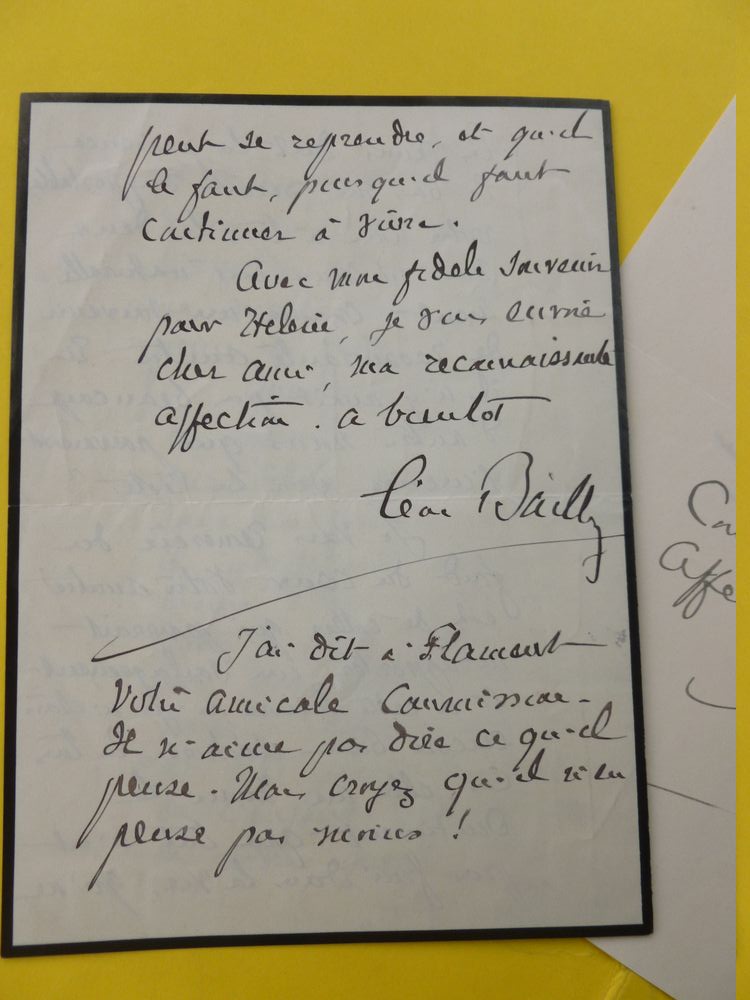 peut se reprendre, et qu'il
le faut, puisqu'il faut
continuer à vivre.
Avec mon fidèle souvenir
pour Hélène, je vous envoie
cher ami, ma reconnaissante
affection. a bientôt
Léon Bailby
J'ai dit à Flament
votre amicale commission.
Il n'aime pas dire ce qu'il
pense. Mais croyez qu'il n'en
pense pas moins !
Affe